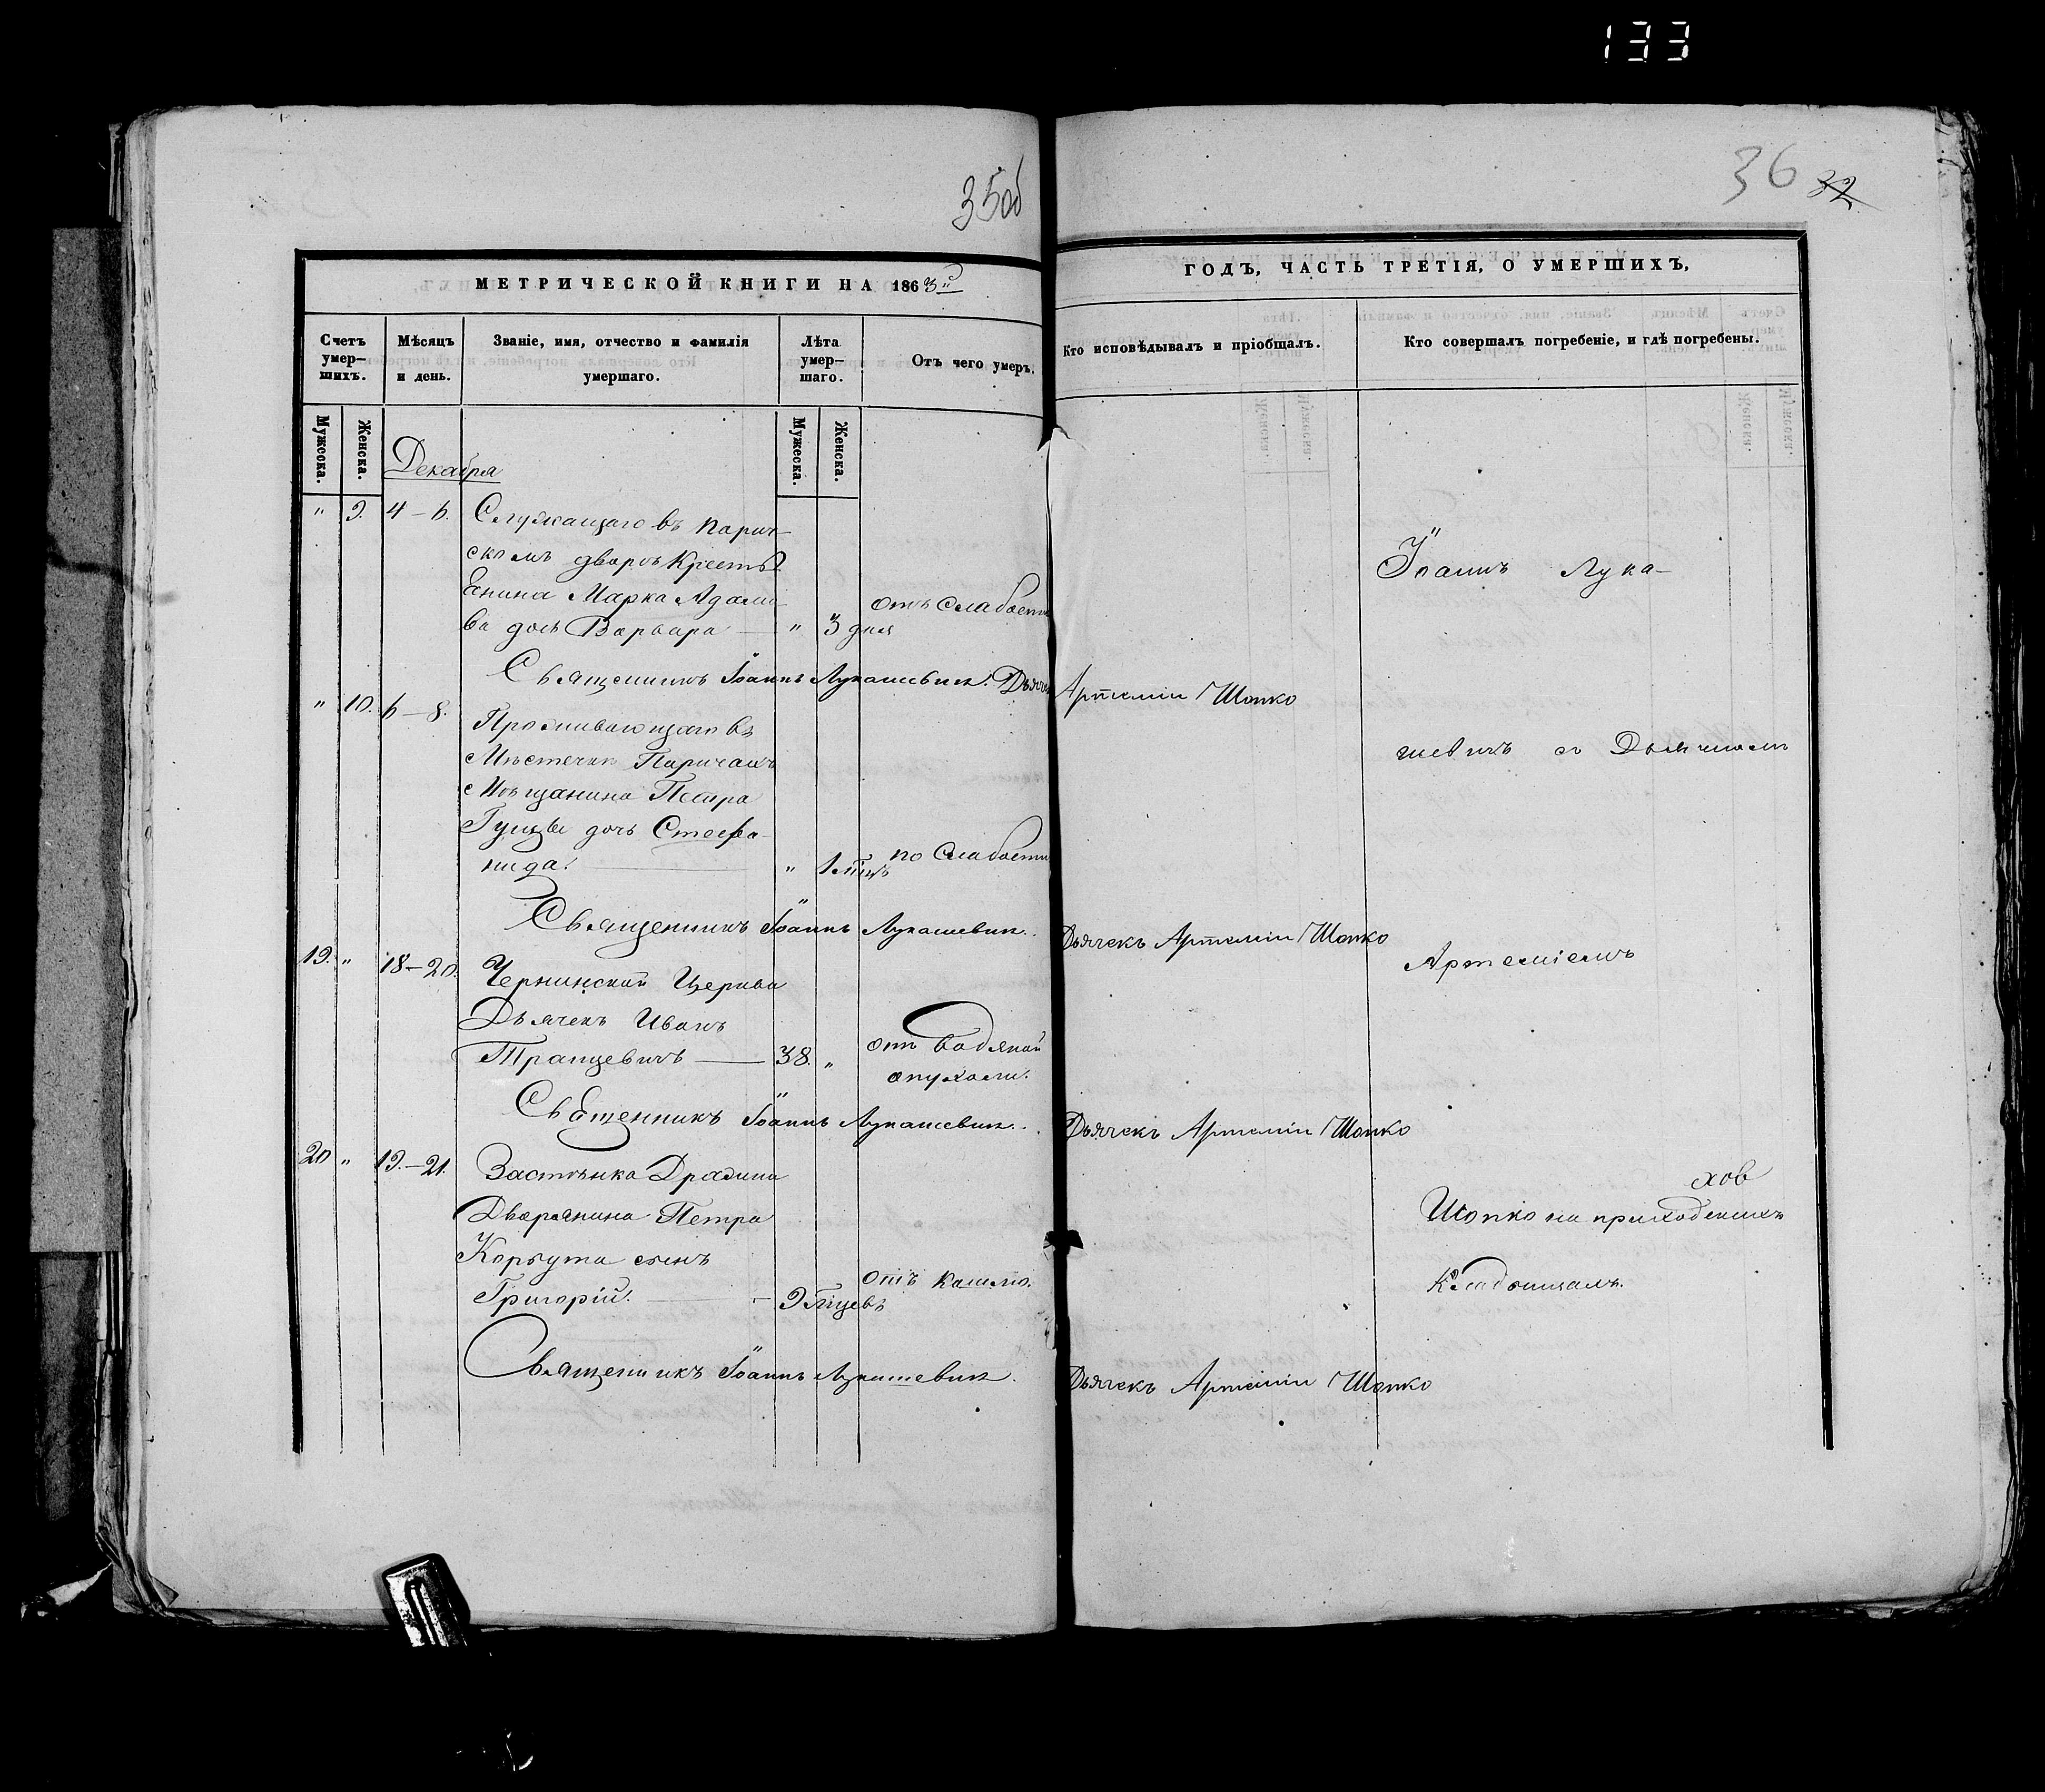 133
35об
36 32
МЕТРИЧЕСКОЙ КНИГИ НА 1863й
ГОДЪ, ЧАСТЬ ТРЕТІЯ, О УМЕРШИХЪ,
Счетъ умер-шихъ.
Мѣсяцъ и день.
Званіе, имя, отчество и фамилія умершаго.
Лѣта умер-шаго.
Отъ чего умеръ.
Кто исповѣдывалъ и пріобщалъ.
Кто совершалъ погребеніе, и гдѣ погребены.
Мужеска.
Женска.
Мужеска.
Женска.
Декабря
" 9. 4-6. Служащаго въ Парич-
скомъ дворѣ Кресть
янина Марка Адами-
ва дочь Варвара — " 3 дня отъ слабости
Священникъ Іоаннъ Лукашевичъ. Дьячекъ Артемій Шопко
" 10. 6-8. Проживающаго въ
Мѣстечкѣ Паричахъ
Мѣщанина Петра
дочь Стефа-
нида. — " 1 мцъ по слабости
Священникъ Іоаннъ Лукашевичъ. Дьячекъ Артемій Шопко
19. " 18-20. Чернинской Церкви
Дьячекъ Иванъ
Транцевичъ — 38. " отъ водяной
опухоли.
Священникъ Іоаннъ Лукашевичъ. Дьячекъ Артемій Шопко
20 " 19.-21. Застѣнка
Дворянина Петра
Корбута сынъ
Григорій. — 9 мцевъ отъ кашлю.
Священникъ Іоаннъ Лукашевичъ. Дьячекъ Артемій Шопко
Іоаннъ Лука-
шевичъ съ Дьячкомъ
Артеміемъ
хов
Шопко на приходскихъ
Кладбищахъ.